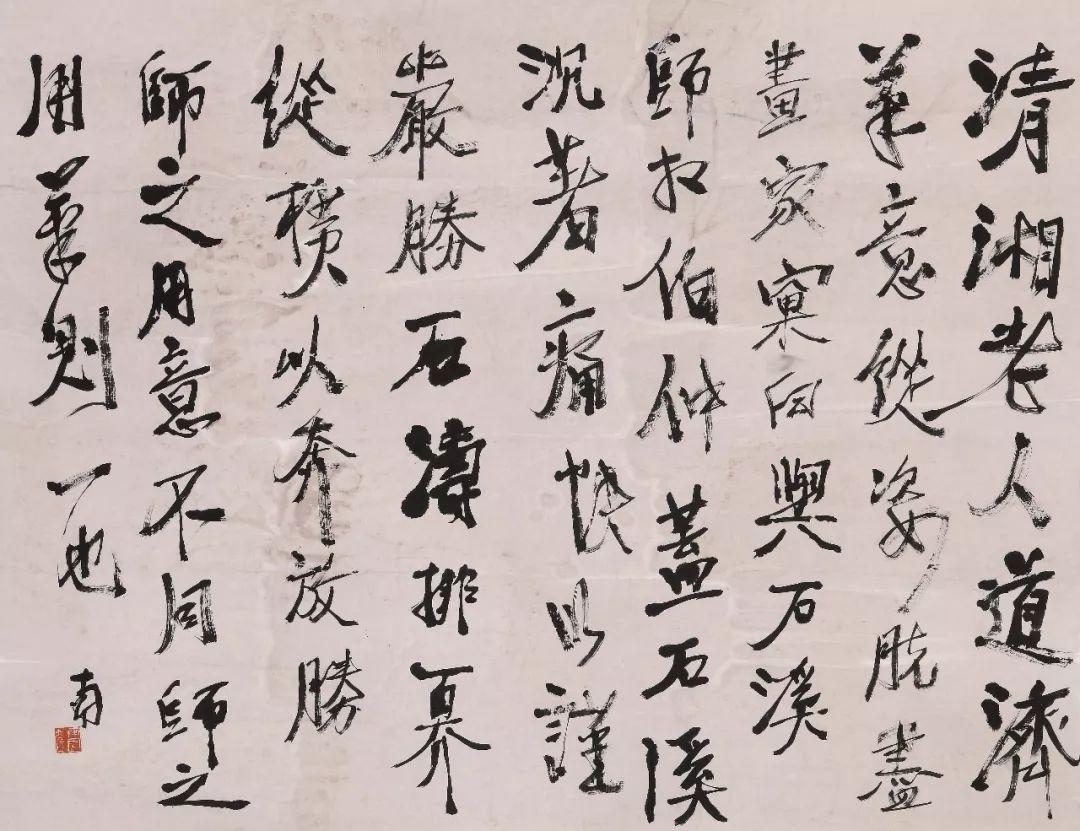 清湘老人道濟
筆意縱姿脫盡
畫家窠臼與石溪
師相伯仲蓋石溪
沉著痛快以謹
嚴勝石濤排奡
縱橫以奔放勝
師之用意不同師之
用筆則一也